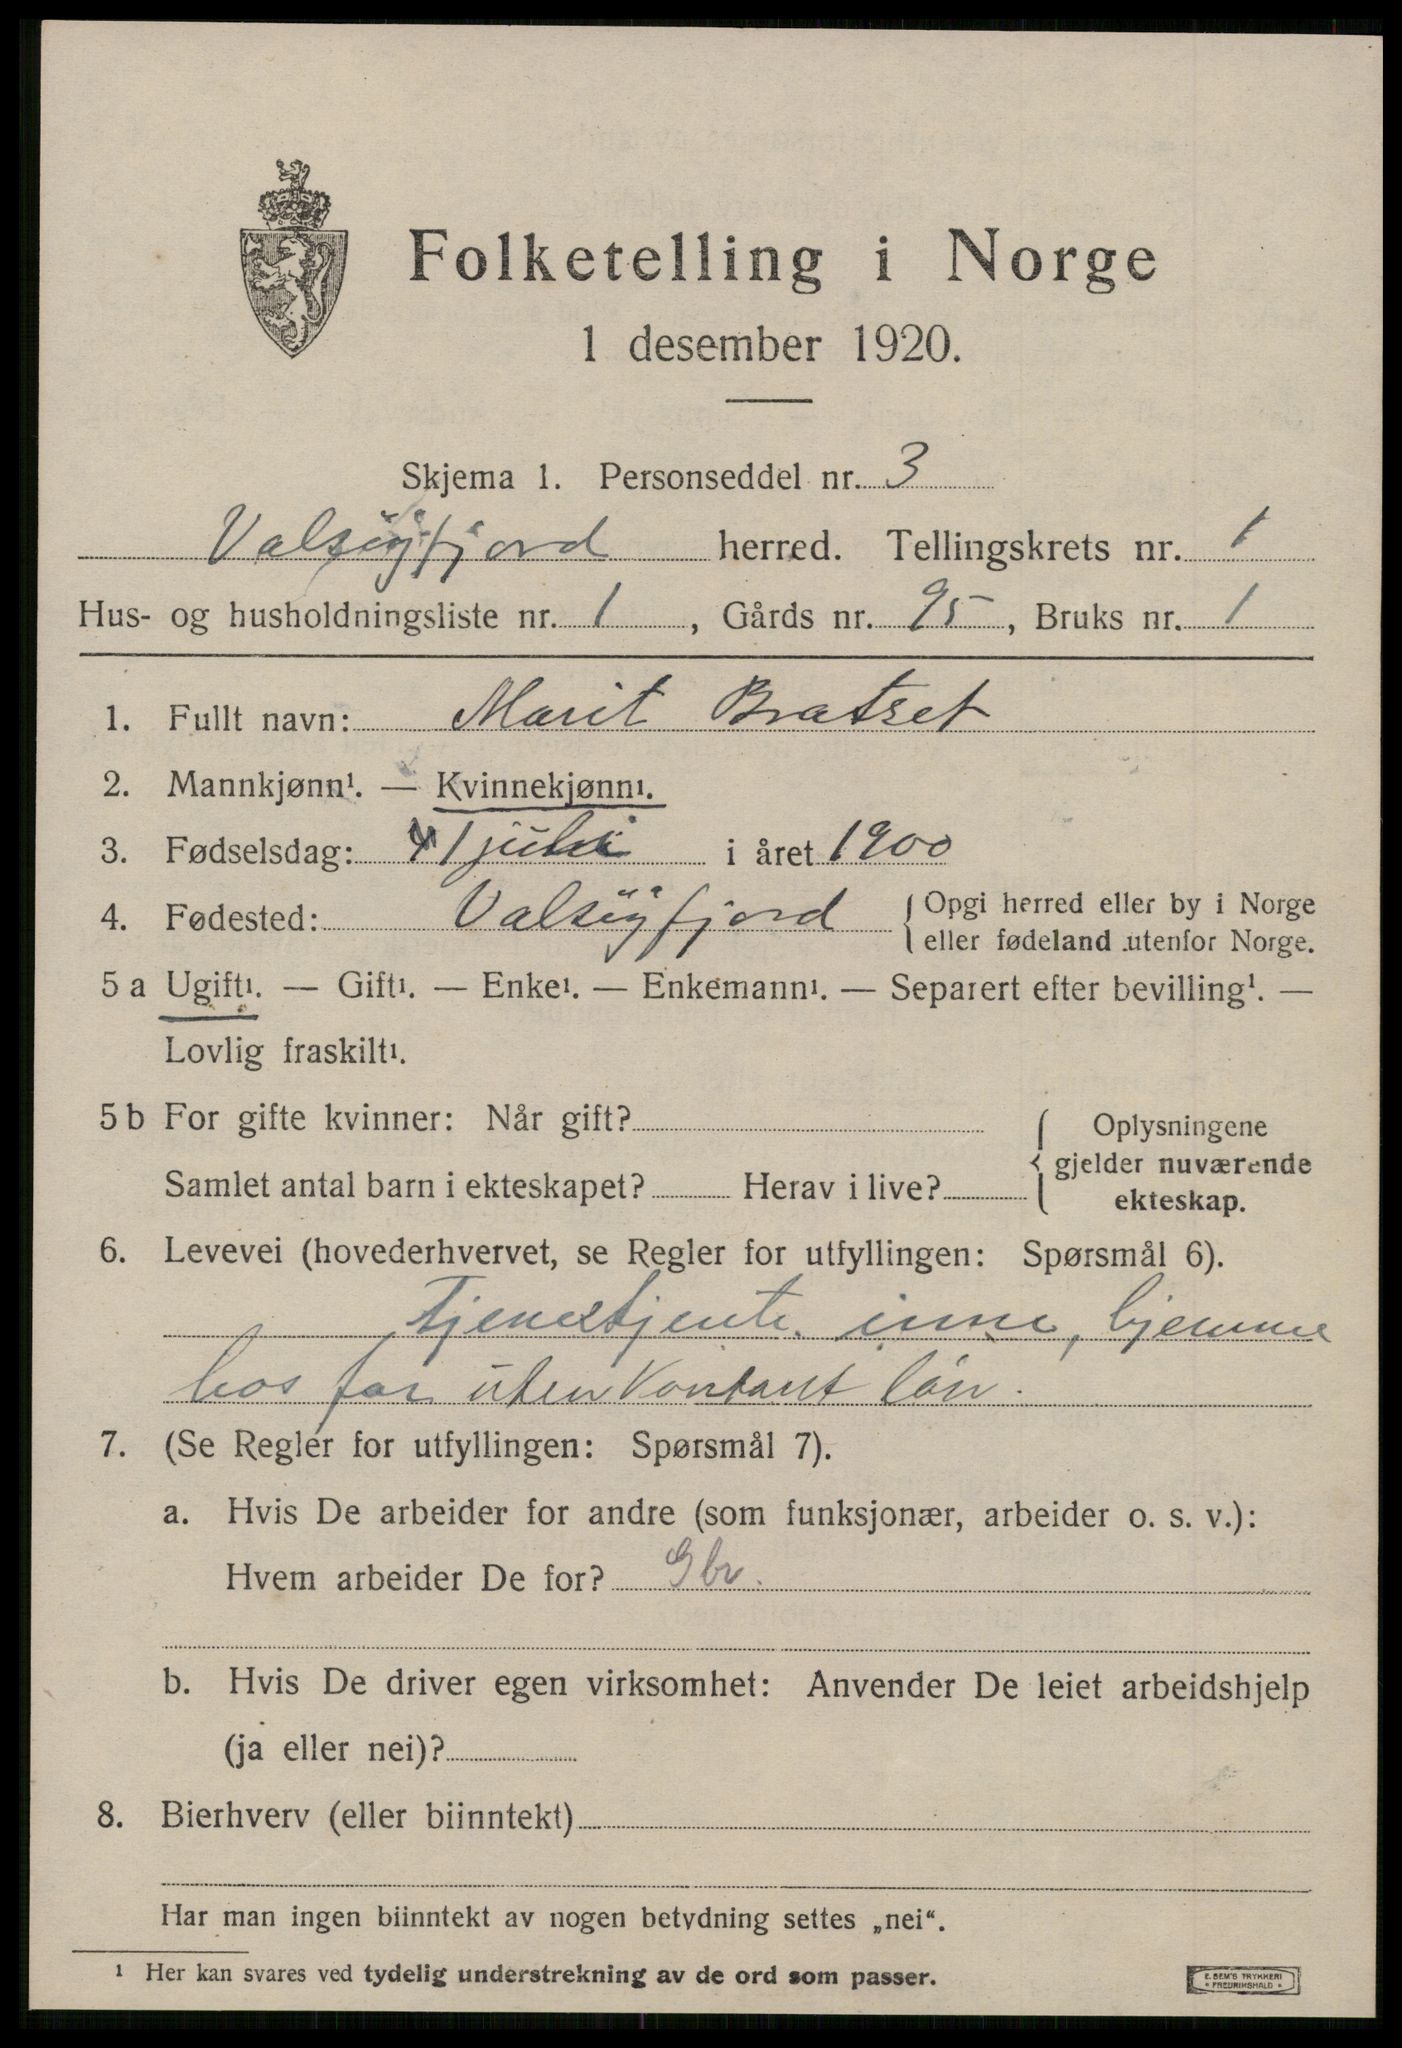 Folketelling i Norge
1 desember 1920.
Skjema 1. Personseddel nr. 3
Valsøyfjord herred. Tellingskrets nr. 1
Hus- og husholdningsliste nr. 1, Gårds nr. 95, Bruks nr. 1
1. Fullt navn: Marit Bratset
2. Mannkjønn¹. — Kvinnekjønn¹.
3. Fødselsdag: juli i året 1900
4. Fødested: Valsøyfjord { Opgi herred eller by i Norge
eller fødeland utenfor Norge.
5 a Ugift¹. — Gift¹. — Enke¹. — Enkemann¹. — Separert efter bevilling¹. —
Lovlig fraskilt¹.
5 b For gifte kvinner: Når gift?
Samlet antal barn i ekteskapet? Herav i live?
{ Oplysningene
gjelder nuværende
ekteskap.
6. Levevei (hovederhvervet, se Regler for utfyllingen: Spørsmål 6).
Tjenestjente. inne, hjemme
hos far uten Kontant løn.
7. (Se Regler for utfyllingen: Spørsmål 7).
a. Hvis De arbeider for andre (som funksjonær, arbeider o. s. v.):
Hvem arbeider De for? Gbr.
b. Hvis De driver egen virksomhet: Anvender De leiet arbeidshjelp
(ja eller nei)?
8. Bierhverv (eller biinntekt)
Har man ingen biinntekt av nogen betydning settes „nei“.
¹ Her kan svares ved tydelig understrekning av de ord som passer.
E. SEM'S TRYKKERI
* FREDRIKSHALD *